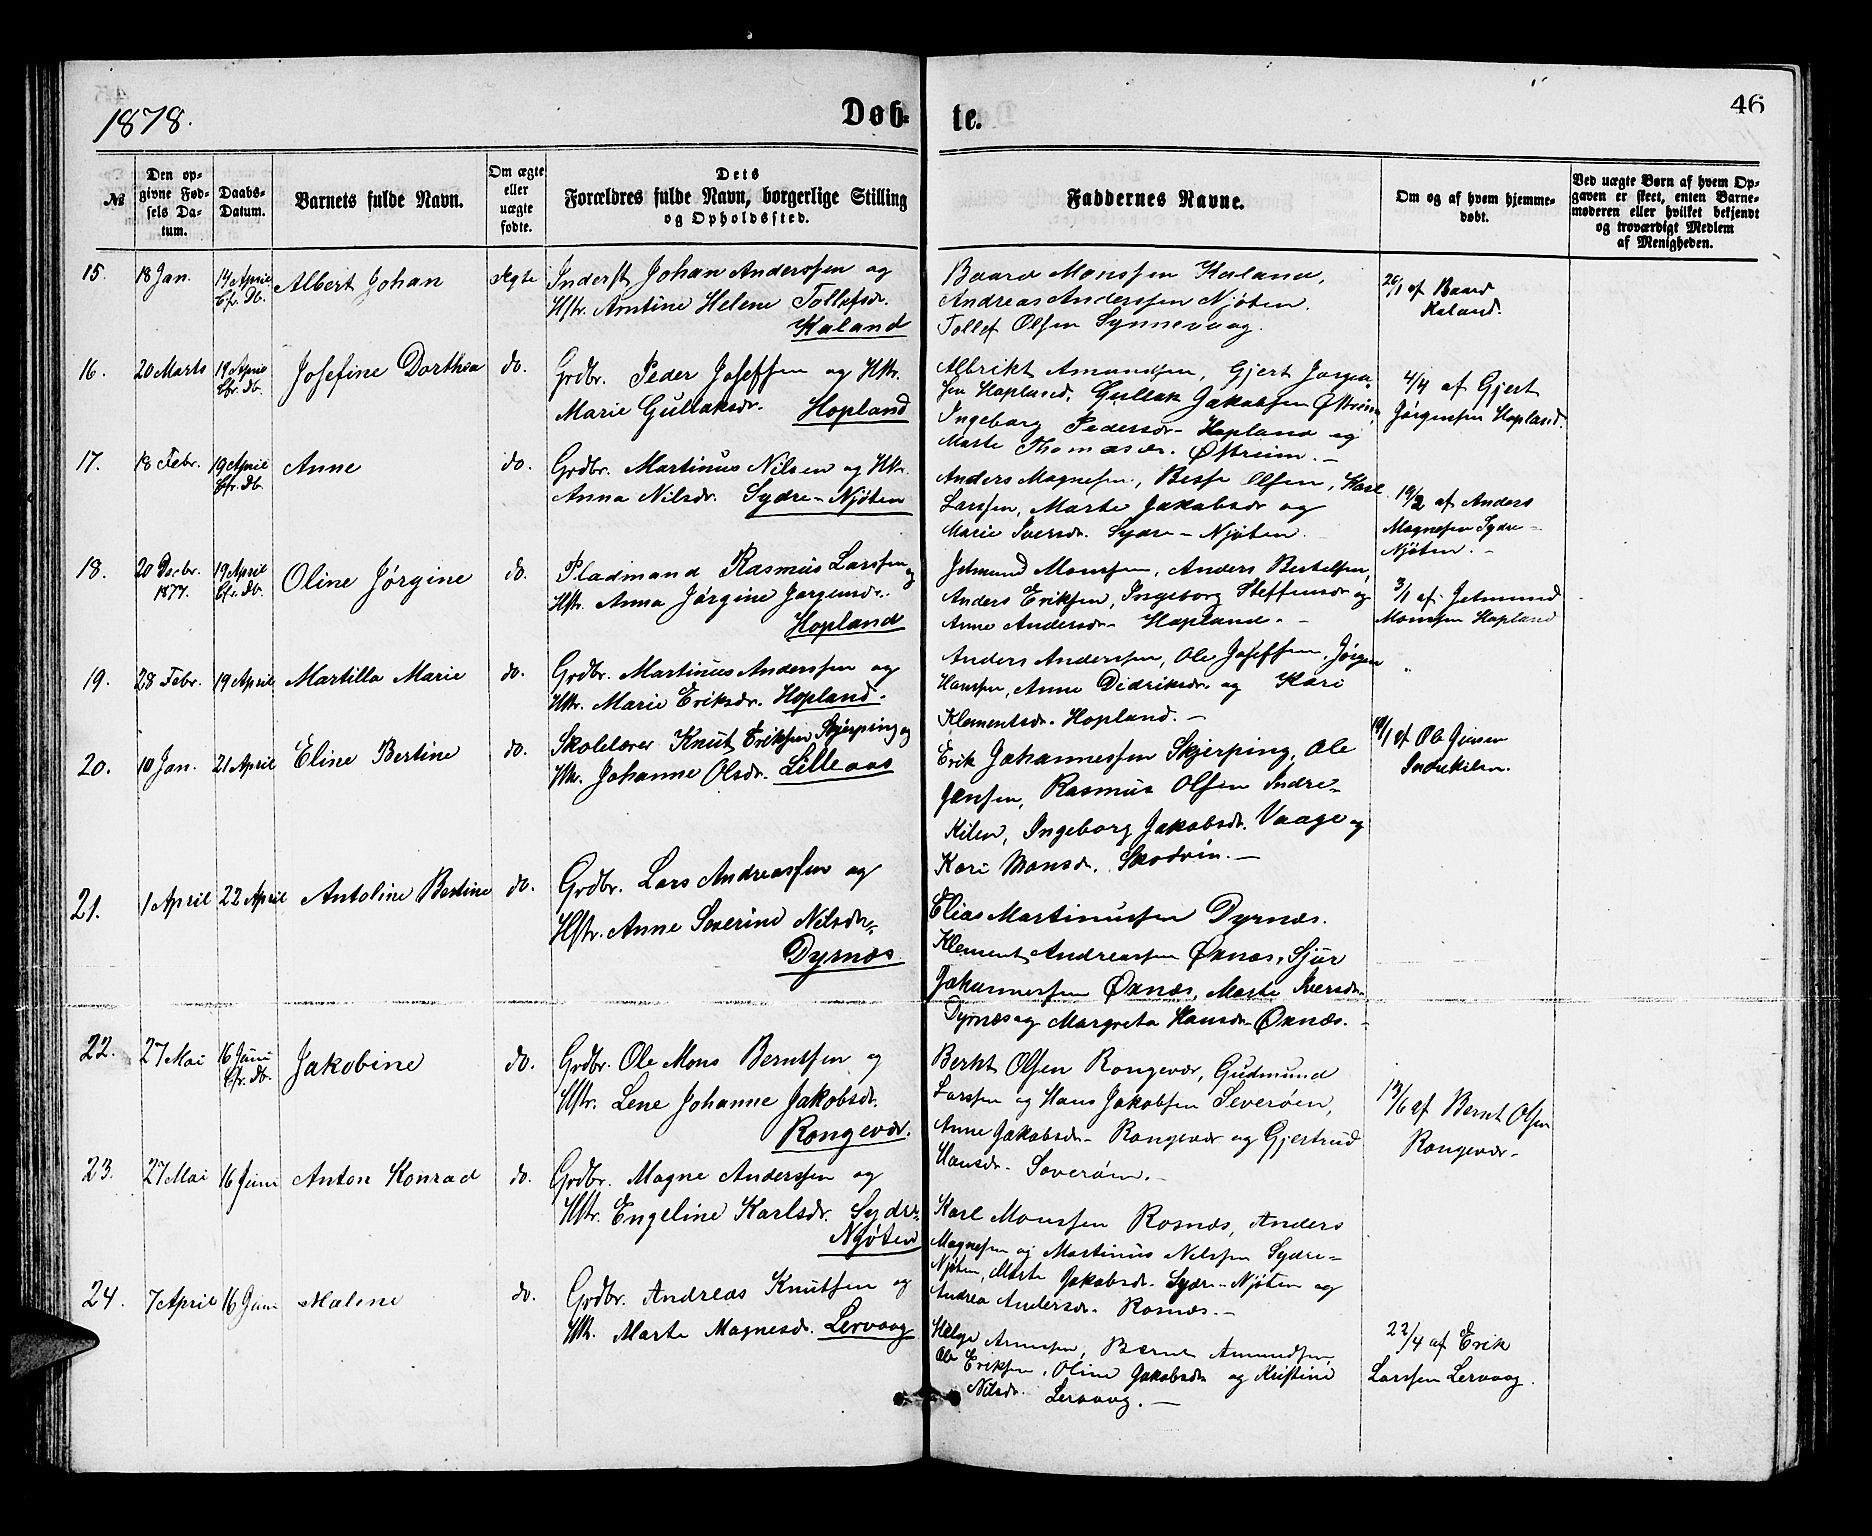 1878.
Døb-
te.
46
№
Den op-
givne Fød-
sels Da-
tum.
Daabs-
Datum.
Barnets fulde Navn.
Om ægte
eller
uægte
fødte.
Dets
Forældres fulde Navn, borgerlige Stilling
og Opholdssted.
Faddernes Navne.
Om og af hvem hjemme-
døbt.
Ved uægte Børn af hvem Op-
gaven er skeet, enten Barne-
moderen eller hvilket bekjendt
og troværdigt Medlem
af Menigheden.
15. 18 Jan. 14 April
Cfr. Db.
Albert Johan
Ægte
Inderst Johan Anderssen og
Hstr. Antine Helene Tollefsdr.
Kaland
Baard Monssen Kaland,
Andreas Anderssen Njøten.
Tollef Olsen Synnevaag.
26/1 af Baard
Kaland.
16. 20 Marts 19 April
Cfr. Db.
Josefine Dorthea
do.
Grdbr. Peder Josefsen og Hstr.
Marie Gullaksdr. Hopland
Albrikt Amundsen, Gjert Jørgen-
sen Hopland, Gullak Jakobsen Østreim,
Ingeborg Pedersdr. Hopland og
Marte Thomasdr. Østreim. -
4/4 af Gjert
Jørgensen Hopland.
17. 18 Febr. 19 April
Cfr. Db.
Anne
do.
Grdbr. Martinus Nilsen og Hstr.
Anna Nilsdr. Sydre-Njøten
Anders Magnesen, Besse Olsen, Karl
Larssen, Marte Jakobsdr og
Marie Iversdr. Sydre-Njøten.
19/2 af Anders
Magnesen Sydre-
Njøten. -
18. 20 Decbr.
1877. 19 April
Cfr. Db.
Oline Jørgine
do.
Pladsmand Rasmus Larssen og
Hstr. Anna Jørgine Jørgensdr.
Hopland
Jetmund Monssen, Anders Bertelsen,
Anders Eriksen, Ingeborg Steffensdr og
Anne Andersdr. Hopland. -
3/1 af Jetmund
Monssen Hopland
19. 28 Febr. 19 April
Martilla Marie
do.
Grdbr. Martinus Anderssen og
Hstr. Marie Eriksdr. Hopland.
Anders Anderssen, Ole Josefsen, Jørgen
Hanssen, Anne Didriksdr. og Kari
Klementsdr. Hopland. -
"
20. 10 Jan. 21 April
Eline Bertine
do.
Skolelærer Knut Eriksen Skjerping og
Hstr. Johanne Olsdr. Lilleaas
Erik Johannessen Skjerping, Ole
Jensen, Rasmus Olsen Indre-
Kilen, Ingeborg Jakobsdr. Vaage og
Kari Monsdr. Skodvin. -
19/1 af Ole Jensen
Indrekilen.
21. 1 April 22 April
Antoline Bertine
do.
Grdbr. Lars Andreassen og
Hstr. Anne Severine Nilsdr.
Dyrnæs
Elias Martinussen Dyrnæs.
Klement Andreassen Øxnæs, Sjur
Johannessen Øxnæs, Marte Iversdr.
Dyrnæs og Margreta Hansdr. Øxnæs. -
22. 27 Mai 16 Juni
Cfr. Db.
Jakobine
do.
Grdbr. Ole Mons Berntsen og
Hstr. Lene Johanne Jakobsdr.
Rongevær.
Bernt Olsen Rongevær, Gudmund
Larssen og Hans Jakobsen Sæverøen,
Anne Jakobsdr. Rongevær og Gjertrud
Hansdr. Sæverøen. -
13/6 af Bernt Olsen
Rongevær-
23. 27 Mai 16 Juni
Anton Konrad
do.
Grdbr. Magne Anderssen og
Hstr. Engeline Karlsdr. Sydre-
Njøten
Karl Monssen Rosnæs, Anders
Magnesen og Martinus Nilssen Sydre-
Njøten, Marte Jakobsdr. Sydre-Njøten og
Andrea Andersdr. Rosnæs. -
24. 7 April 16 Juni
Malene
do.
Grdbr. Andreas Knutsen og
Hstr. Marte Magnesdr. Lervaag
Helge Arnesen, Bernt Amundsen,
Ole Eriksen, Oline Jakobsdr og Kristine
Nilsdr. Lervaag. -
22/4 af Erik
Larssen Lervaag.